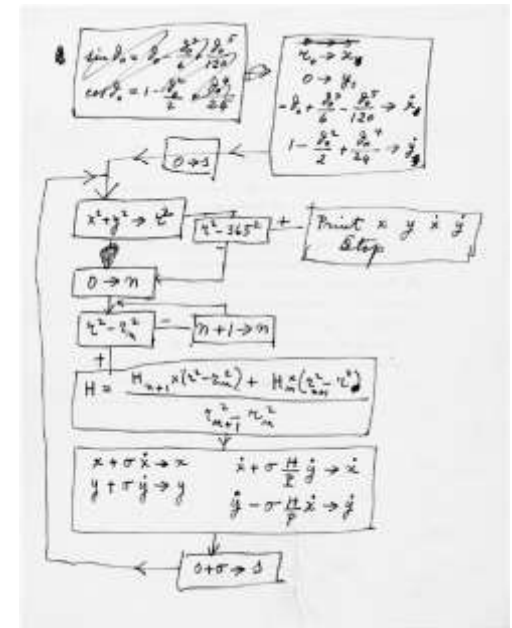 sin ϑ₀ = ϑ₀ - ϑ₀³/6 + ϑ₀⁵/120
cos ϑ₀ = 1 - ϑ₀²/2 + ϑ₀⁴/24
r₀ → x₀
0 → y₀
-ϑ₀ + ϑ₀³/6 - ϑ₀⁵/120 → ẋ₀
1 - ϑ₀²/2 + ϑ₀⁴/24 → ẏ₀
0 → s
x² + y² → r²
r² - 365²
+
-
Print x y ẋ ẏ
Stop
0 → n
r² - rₙ²
-
n + 1 → n
+
H = (Hₙ₊₁ × (r² - rₙ²) + Hₙ × (rₙ₊₁² - r²)) / (rₙ₊₁² - rₙ²)
x + σ ẋ → x
y + σ ẏ → y
ẋ + σ H/P ẏ → ẋ
ẏ - σ H/P ẋ → ẏ
s + σ → s